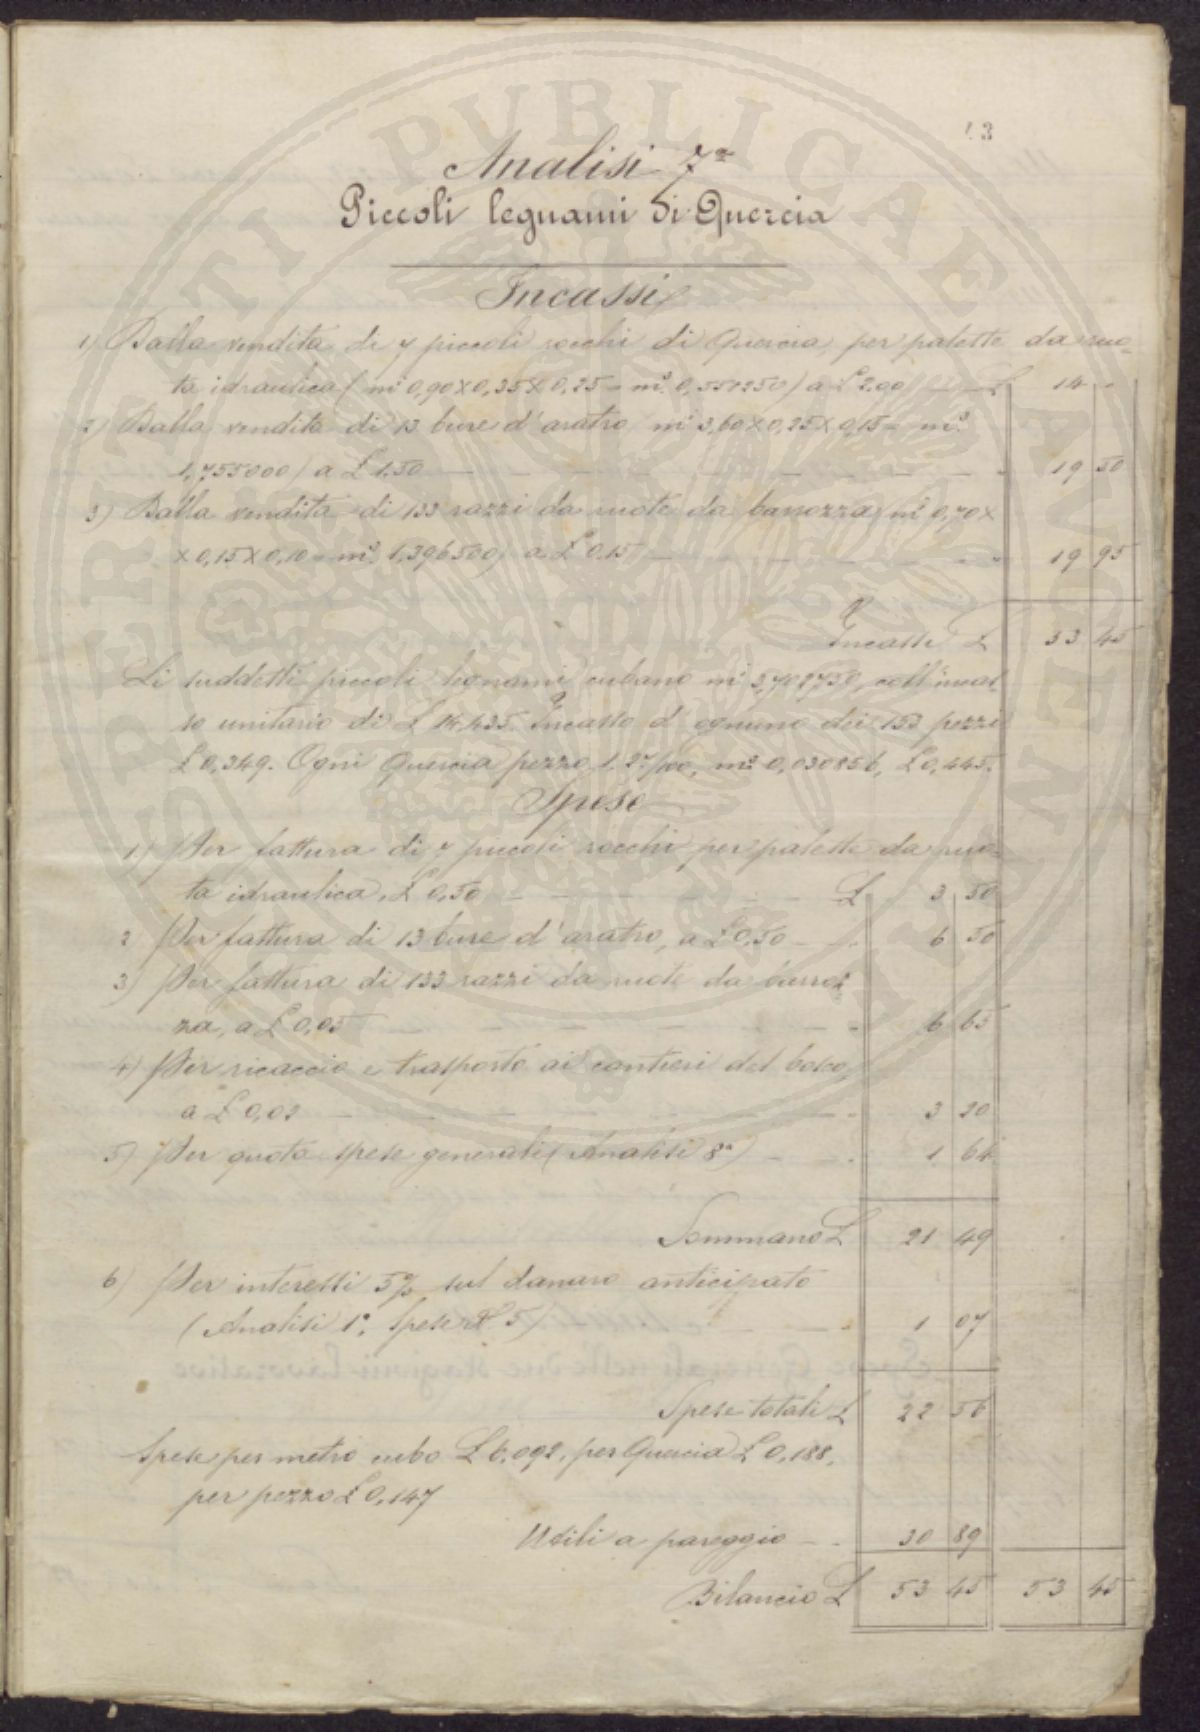 43
Analisi 7ª
Piccoli legnami di Quercia
Incassi
1) Dalla vendita di 7 piccoli rocchi di Quercia, per palette da ruo-
ta idraulica (mⁱ 0,90 X 0,35 X 0,25 = m³. 0,551250) a £ 2.00 — £ 14 -
2) Dalla vendita di 13 bure d'aratro, mⁱ 3,60 X 0,25 X 0,15 = m³.
1,755000) a £ 1.50 — 19 50
3) Dalla vendita di 133 razzi da ruote da barrozza (mⁱ 0,70 X
X 0,15 X 0,10 = m³. 1,396500) a £ 0.15 — 19 95
Incassi £ 53 45
Li suddetti piccoli legnami cubano mⁱ 3,702750, coll'incas-
so unitario di £ 14,435. Incasso d'ognuno dei 153 pezzi
£ 0,349. Ogni Quercia pezzo 1.27/100, m³ 0,030856, £ 0,445.
Spese
1) Per fattura di 7 piccoli rocchi per palette da ruo-
ta idraulica, £ 0,50 — £ 3 50
2 Per fattura di 13 bure d'aratro, a £ 0,50 — 6 50
3) Per fattura di 133 razzi da ruote da barroz
za, a £ 0,05 — 6 65
4) Per ricaccio e trasporto ai cantieri del bosco,
a £ 0,02 — 3 20
5) Per quota spese generali (Analisi 8ª) — 1 64
Sommano £ 21 49
6) Per interessi 5% sul danaro anticipato
(Analisi 1ª, Spese N° 5) — 1 07
Spese totali £ 22 56
Spese per metro cubo £ 6.092, per Quercia £ 0,188,
per pezzo £ 0,147
Utili a pareggio — 30 89
Bilancio £ 53 45 53 45